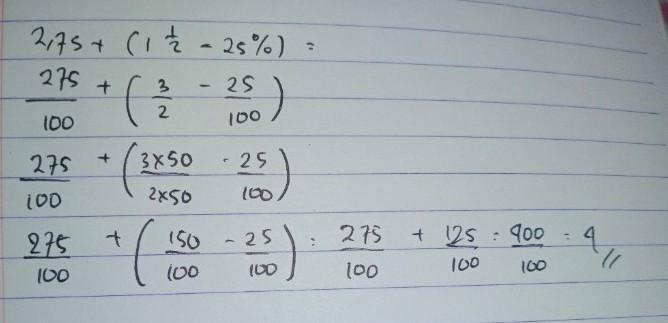 2,75 + (1 1/2 - 25%) =
275/100 + (3/2 - 25/100)
275/100 + (3x50/2x50 - 25/100)
275/100 + (150/100 - 25/100) = 275/100 + 125/100 = 400/100 = 4 //